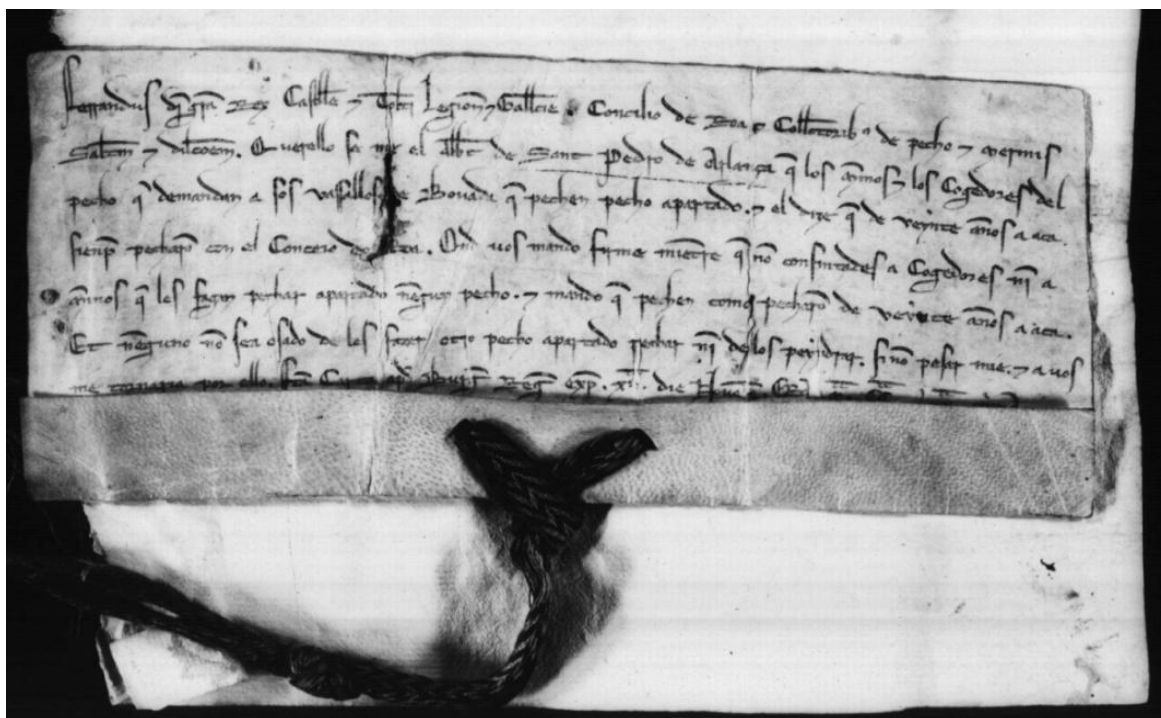 Ferrandus dī gr̄a Rex Castelle ⁊ Tol̄ti Legioñ ⁊ Gall̄cie. Concilio de Roa ⁊ Coll̄ctorib⁹ de pecho ⁊ merinis
Sal̄tm ⁊ dil̄coem̄. Querello se me el Abb̄t de Sant Pedro de Arlança q̄ los Annos ⁊ los Cogedores del
pecho q̄ demandan a sos vassallos de Bouada q̄ pechen pecho apartado. ⁊ el dize q̄ de veynte años a aca
siemp̄ pecharō con el Conceio de Roa. Ond uos mando firme mietre q̄ nō consintades a Cogedores nī a
Annos q̄ les fagan pechar apartado nēgun pecho. ⁊ mando q̄ pechen como pecharō de veynte años a aca.
Et nēguno nō sea osado de les fazer otro pecho apartado pechar nī de los peyndrar. si nō pesar mie. ⁊ a uos
me tornaria por ello. exp̄. die